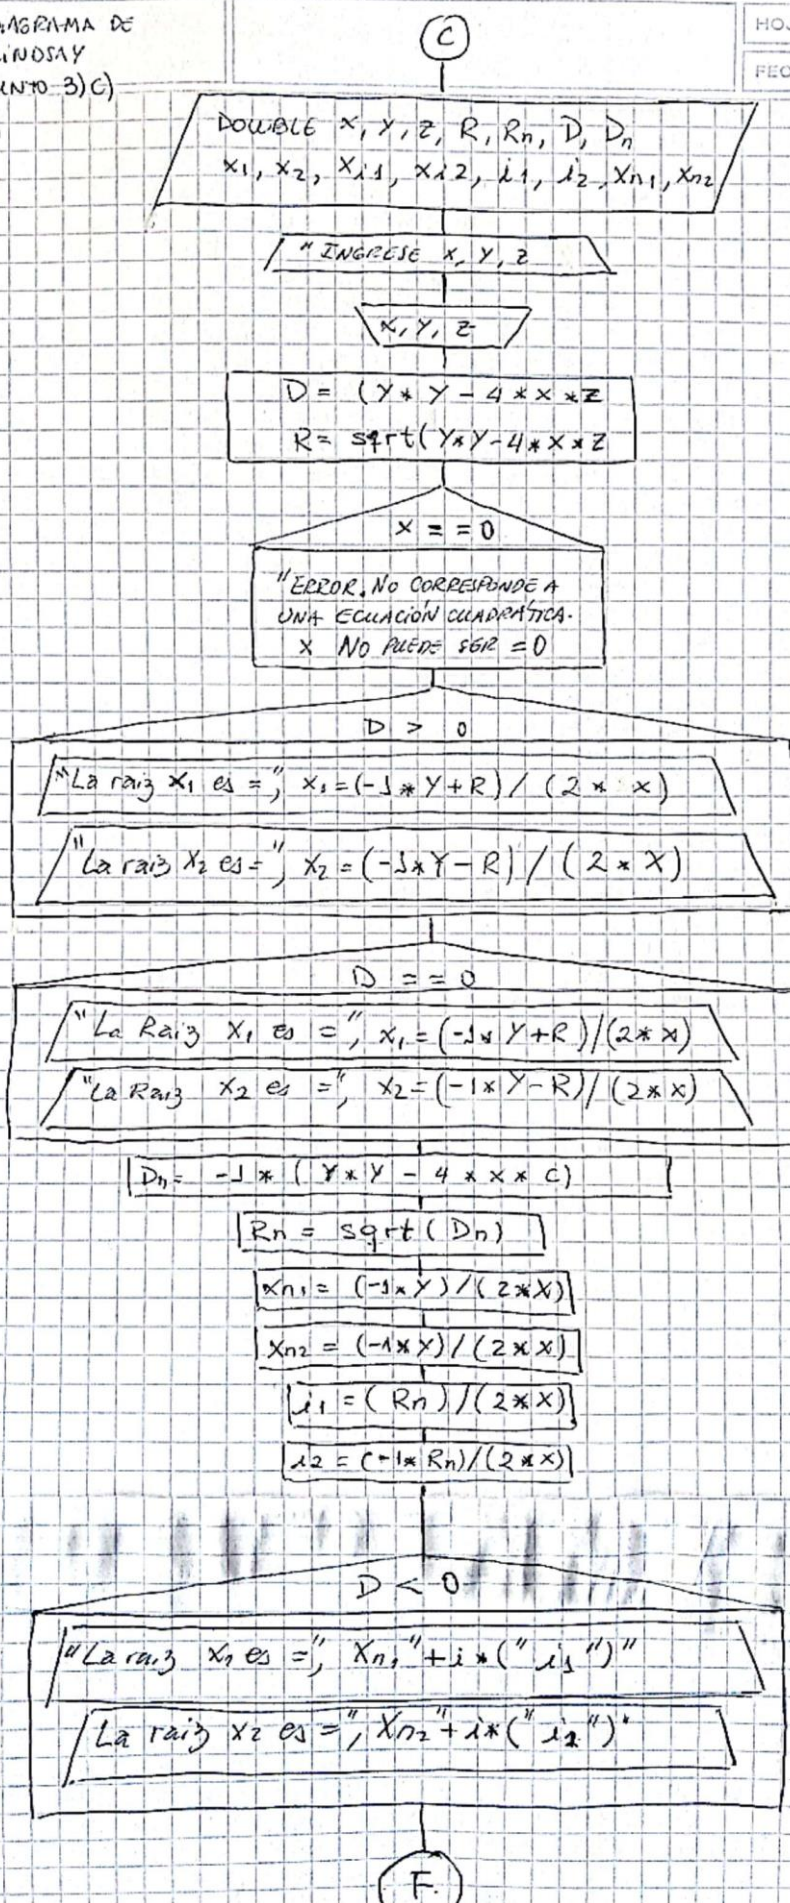 AGRAMA DE
INDSAY
NTO 3)C)
HOJ
FEC
C
DOUBLE X, Y, Z, R, Rn, D, Dn
X1, X2, Xi1, Xi2, i1, i2, Xn1, Xn2
"INGRESE X, Y, Z
X, Y, Z
D = (Y * Y - 4 * X * Z
R = sqrt(Y*Y-4*X*Z
X = = 0
"ERROR. NO CORRESPONDE A
UNA ECUACIÓN CUADRÁTICA.
X NO PUEDE SER =0
D > 0
"La raiz X1 es =", X1=(-1*Y+R)/(2 * X)
"La raiz X2 es =", X2=(-1*Y-R)/(2 * X)
D = = 0
"La Raiz X1 es =", X1=(-1*Y+R)/(2*X)
"La Raiz X2 es =", X2=(-1*Y-R)/(2*X)
Dn= -1 * ( Y*Y - 4 * X * C)
Rn = sqrt(Dn)
Xn1 = (-1*Y)/(2*X)
Xn2 = (-1*Y)/(2*X)
i1 = (Rn)/(2*X)
i2 = (-1*Rn)/(2*X)
D < 0
"La raiz X1 es =", Xn1"+i*("i1")"
La raiz X2 es =", Xn2"+i*("i2")"
F.